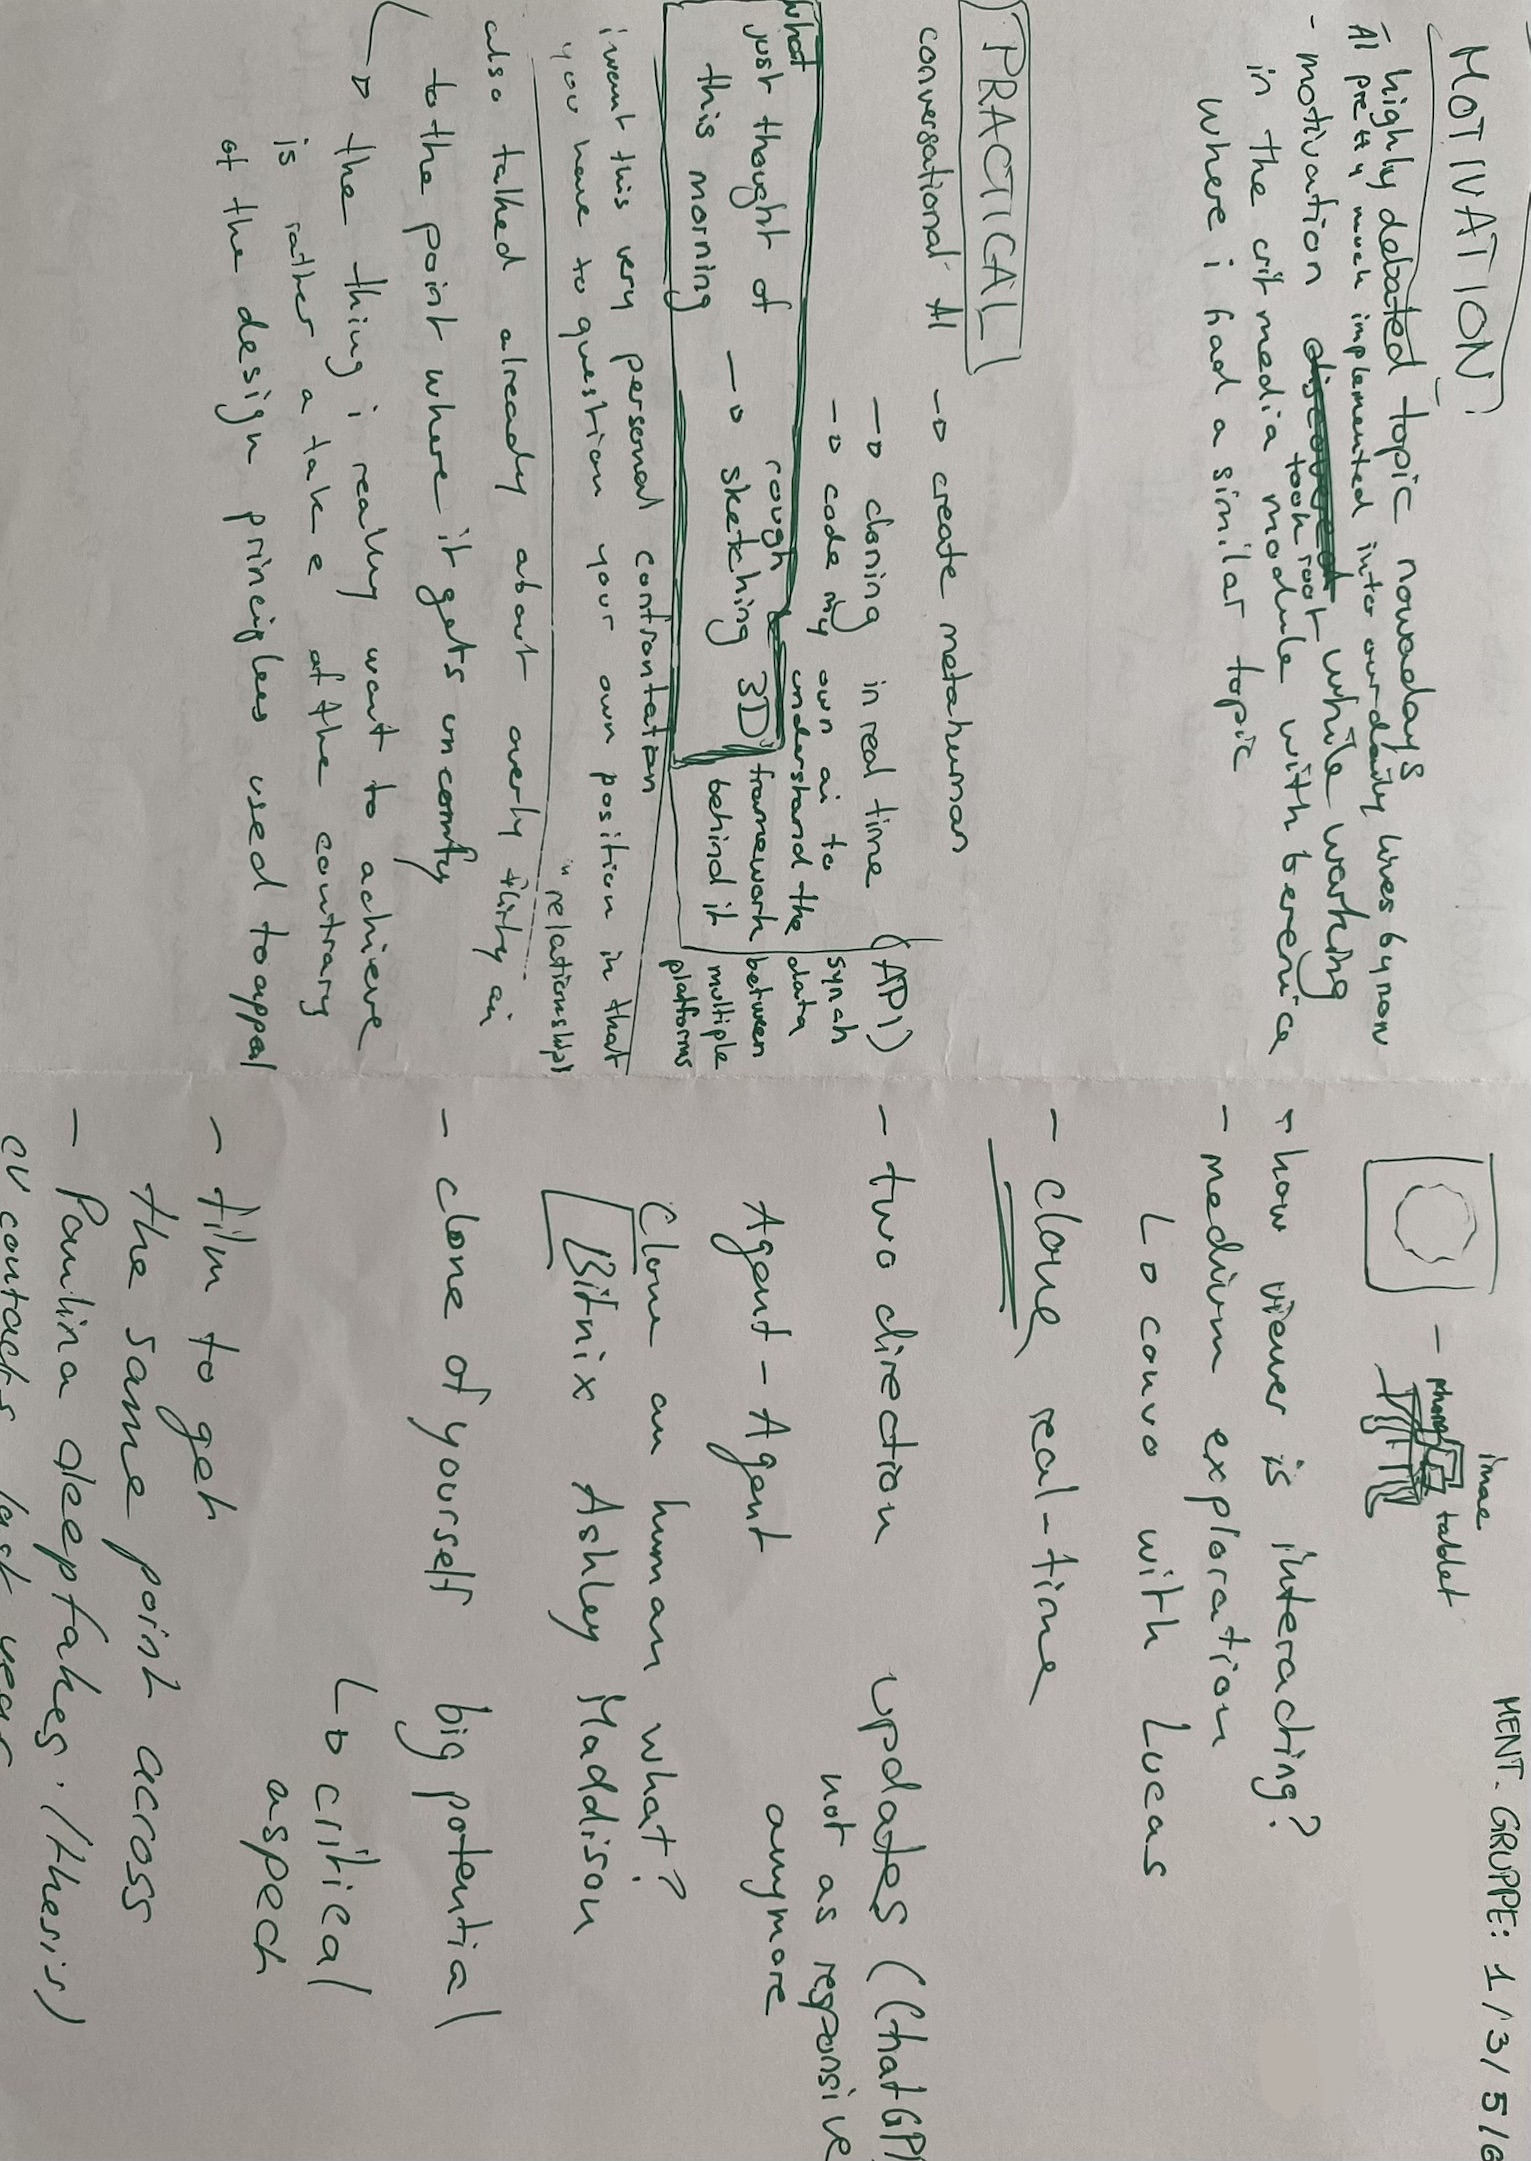 MOTIVATION
- highly debated topic nowadays
AI pretty much implemented into our daily lives by now
- motivation took root while working
in the crit media module with berenice
where i had a similar topic
PRACTICAL
conversational AI → create metahuman
→ cloning in real time (API)
→ code my own ai to understand the framework behind it
synch data between multiple platforms
what just thought of this morning → rough sketching 3D
i want this very personal confrontation
you have to question your own position in that "relationship"
also talked already about overly flirty ai
to the point where it gets uncomfy
→ the thing i really want to achieve
is rather a take of the contrary
of the design principles used to appeal
MENT. GRUPPE: 1/3/5/6
- phone
tablet
- how viewer is interacting?
- medium exploration
↳ convo with Lucas
- clone, real-time
- two direction
updates (ChatGP
not as responsive
anymore
Agent - Agent
Clone an human what?
Bitnix Ashley Maddison
- clone of yourself big potential
↳ critical
aspect
- film to get
the same point across
- Paulina deepfakes. (thesis)
CV contacts last year